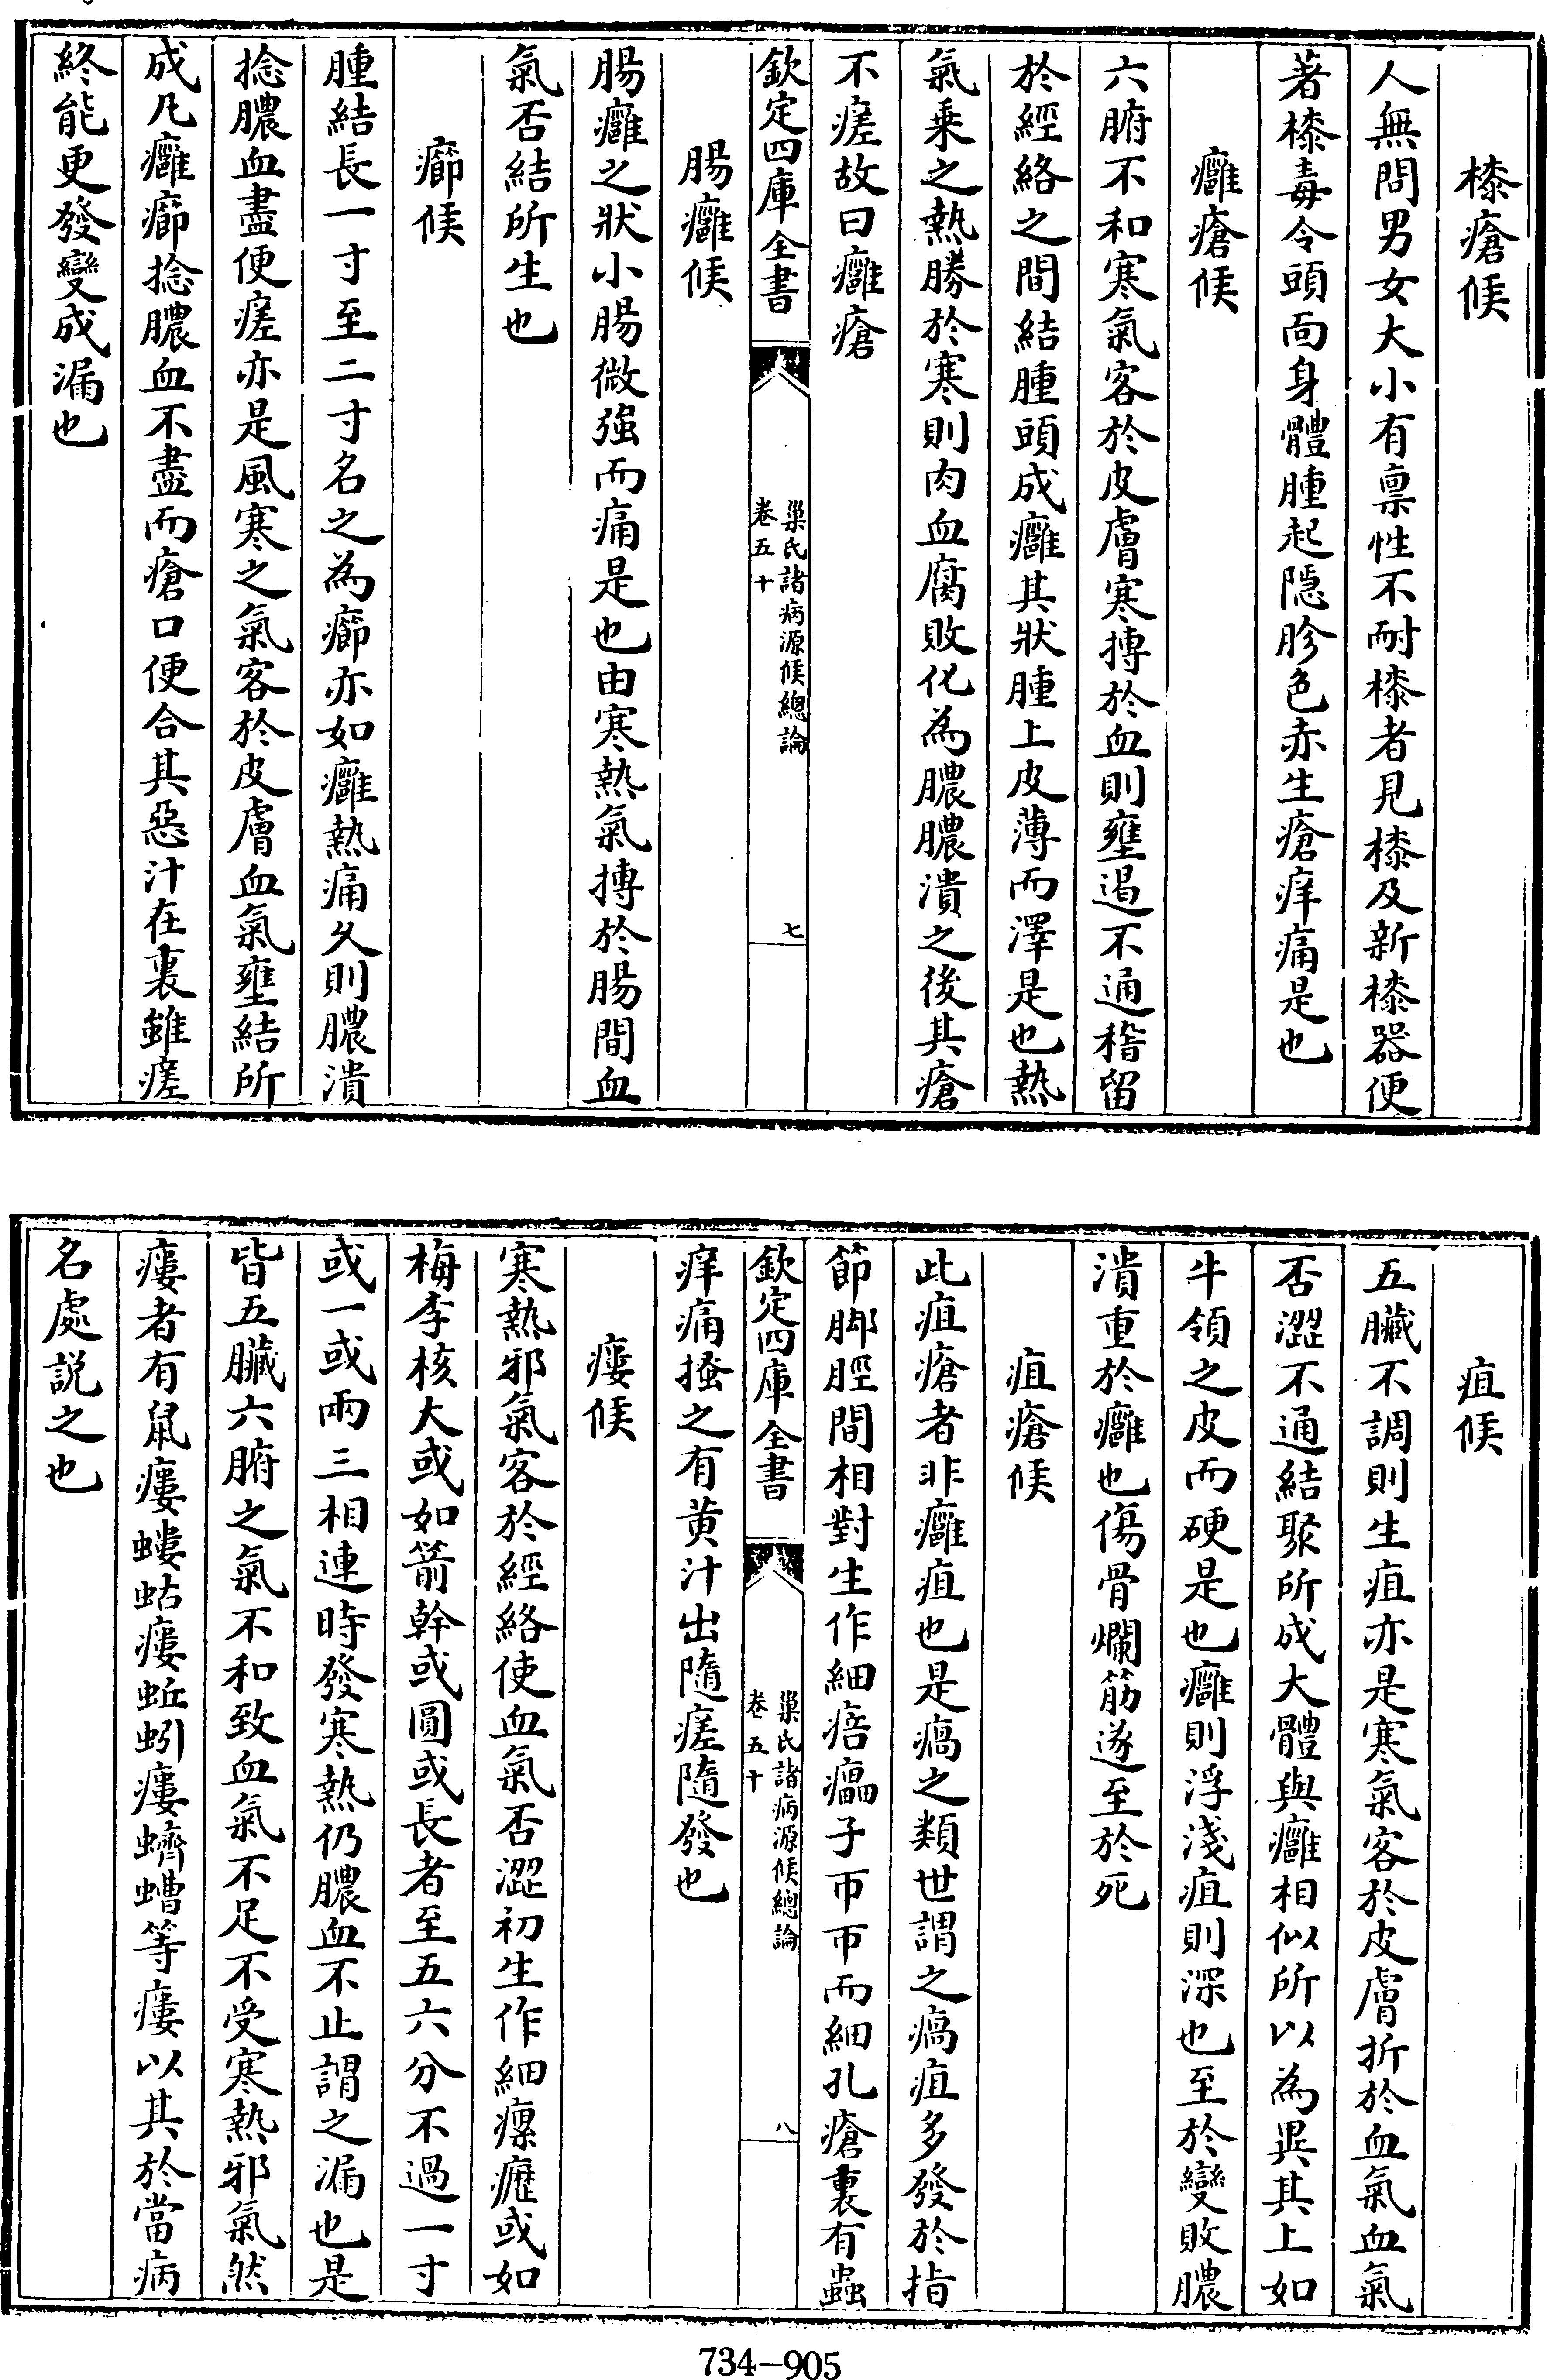 㯃瘡候
人無問男女大小有禀性不耐㯃者見㯃及新㯃器便
著㯃毒令頭面身體腫起隠胗色赤生瘡痒痛是也
癰瘡候
六腑不和寒氣客於皮膚寒搏於血則壅遏不通稽留
於經絡之間結腫頭成癰其狀腫上皮薄而澤是也熱
氣乗之熱勝於寒則肉血腐敗化為膿膿潰之後其瘡
不瘥故曰癰瘡
欽定四庫全書
巢氏諸病源候總論
卷五十
七
腸癰候
腸癰之狀小腸微強而痛是也由寒熱氣搏於腸間血
氣否結所生也
癤候
腫結長一寸至二寸名之為癤亦如癰熱痛久則膿潰
捻膿血盡便瘥亦是風寒之氣客於皮膚血氣壅結所
成凡癰癤捻膿血不盡而瘡口便合其惡汁在裏雖瘥
終能更發變成漏也
疽候
五臟不調則生疽亦是寒氣客於皮膚折於血氣血氣
否澀不通結聚所成大體與癰相似所以為異其上如
牛領之皮而硬是也癰則浮淺疽則深也至於變敗膿
潰重於癰也傷骨爛筋遂至於死
疽瘡候
此疽瘡者非癰疽也是瘑之類世謂之瘑疽多發於指
節脚脛間相對生作細痦㿔子帀帀而細孔瘡裏有蟲
欽定四庫全書
巢氏諸病源候總論
卷五十
八
痒痛搔之有黄汁出隨瘥隨發也
瘻候
寒熱邪氣客於經絡使血氣否澀初生作細瘰癧或如
梅李核大或如箭幹或圓或長者至五六分不過一寸
或一或兩三相連時發寒熱仍膿血不止謂之漏也是
皆五臟六腑之氣不和致血氣不足不受寒熱邪氣然
瘻者有鼠瘻螻蛄瘻蚯蚓瘻蠐螬等瘻以其於當病
名處説之也
734-905